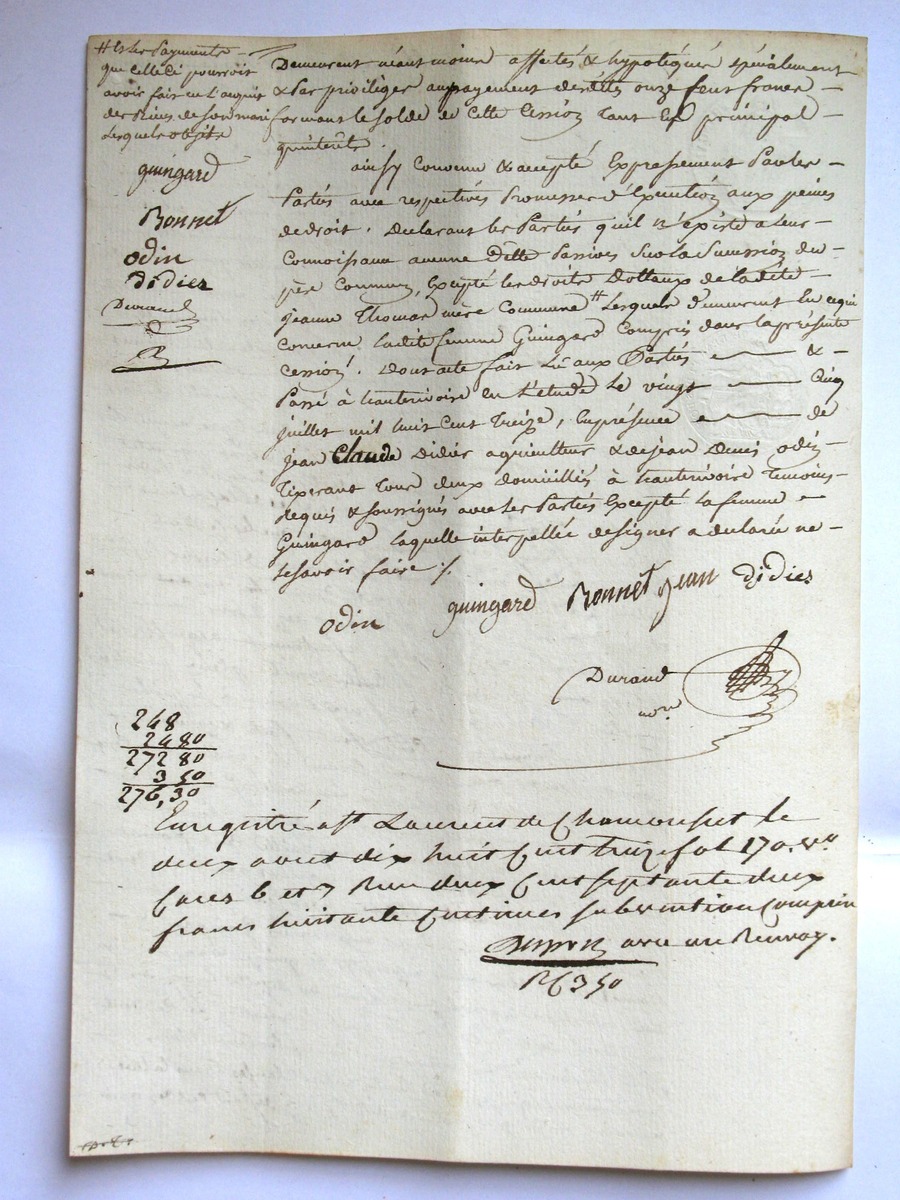 # et les Payments
que celle ci pourroit
avoir fait en l'acquit
des Reins de son mari
lesquels objets
guingard
Bonnet
odin
didier
Durand
Demeurent néantmoins affectés & hypotéqués spécialement
& par privilège au payement desdits onze cent francs
formant le solde de cette Cession tant En principal
qu'intérêts.
ainsy Convenu & accepté Expressement Par les
Parties avec respectives Promesses d'Exécution aux peines
de droit. Déclarant les Parties qu'il n'existe a leur
connoissance aucune dette Passives Sur la Succession du
père Commun, Excepté les droits Dottaux de ladite
jeanne Thomas mère Commune # Lesquels demeurent En ce qui
concerne ladite femme Guingard Compris dans la présente
cession. Dont acte fait Lû aux Parties &
Passé à hauterivoire en L'etude Le vingt Cinq
juillet mil huit Cent Treize, En présence de
jean Claude Didier agriculteur & de jean Denis odin
Tixerant Tous deux domiciliés à hauterivoire Temoins
requis & soussignés avec les Parties Excepté la femme
Guingard laquelle interpellée de signer a déclaré ne
le savoir faire ./.
odin guingard Bonnet jean didier
Durand
nore
248
24 80
272 80
3 50
276,30
Enregistré a St Laurent de Chamousset le
deux aout dix huit Cent treize fol 170. vo
Cases 6 et 7 Reçu deux Cent septante deux
francs huitante Centimes subvention Comprise
avec un Renvoy.
3 50